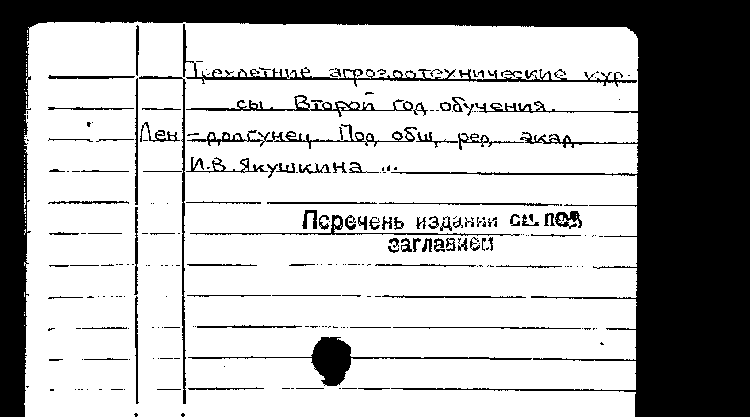 Трехлетние агрозоотехнические кур-
сы. Второй год обучения.
Лен-долгунец Под общ. ред. акад.
И.В. Якушкина ...
Перечень издании см. под
заглавием